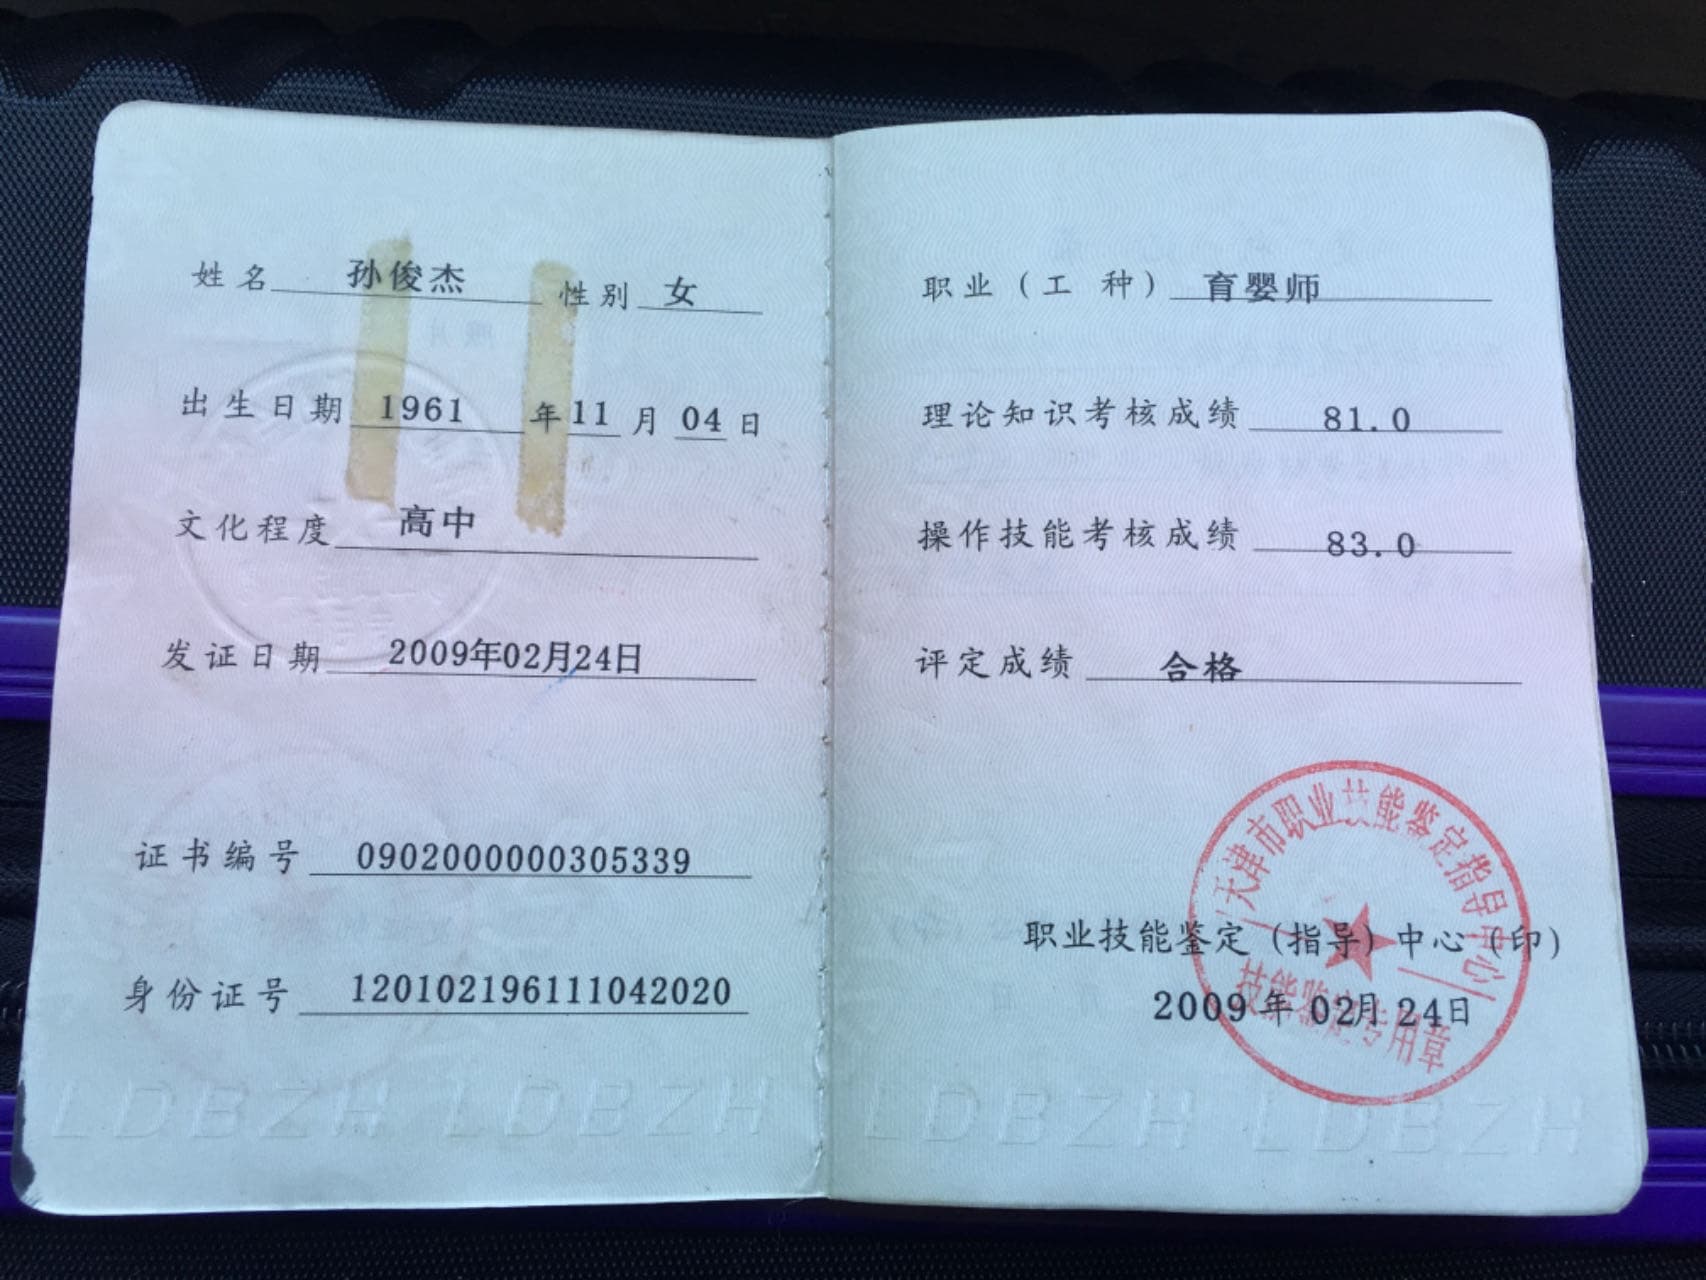 姓名 孙俊杰 性别 女
出生日期 1961 年 11 月 04 日
文化程度 高中
发证日期 2009年02月24日
证书编号 0902000000305339
身份证号 120102196111042020
LDBZH LDBZH
职业（工 种） 育婴师
理论知识考核成绩 81.0
操作技能考核成绩 83.0
评定成绩 合格
天津市职业技能鉴定指导中心
职业技能鉴定（指导）中心（印）
2009 年 02月 24日
技能鉴定专用章
LDBZH LDBZH